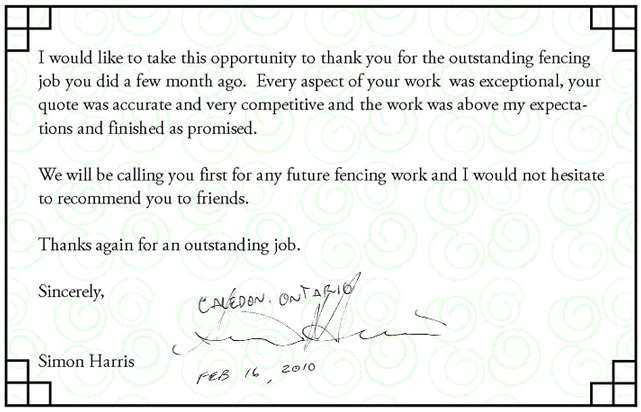 I would like to take this opportunity to thank you for the outstanding fencing
job you did a few month ago. Every aspect of your work was exceptional, your
quote was accurate and very competitive and the work was above my expecta-
tions and finished as promised.
We will be calling you first for any future fencing work and I would not hesitate
to recommend you to friends.
Thanks again for an outstanding job.
Sincerely,
CALEDON, ONTARIO
Simon Harris
FEB 16, 2010